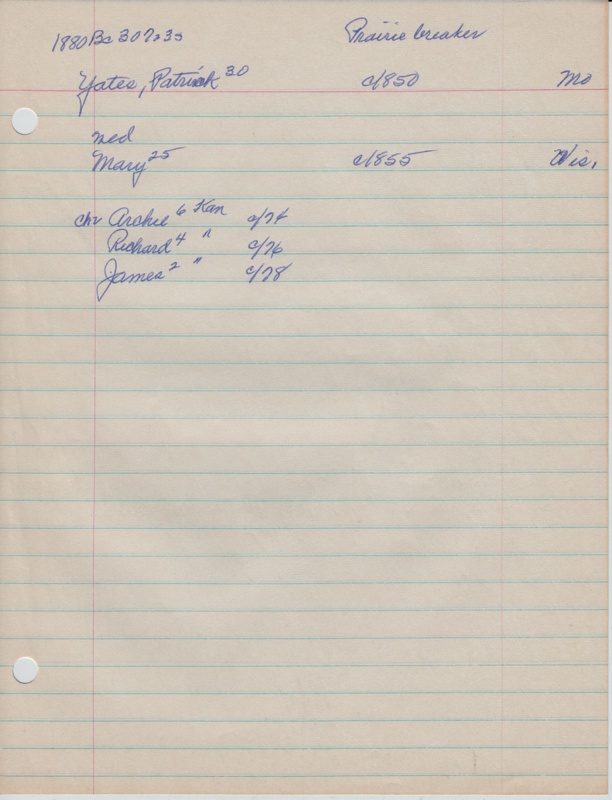 1880 Bc 307-35 Prairie breaker
Yates, Patrick 30 c/850 Mo
med
Mary 25 c/855 Wis,
chr Archie 6 Kan c/74
Richard 4 " c/76
James 2 " c/78